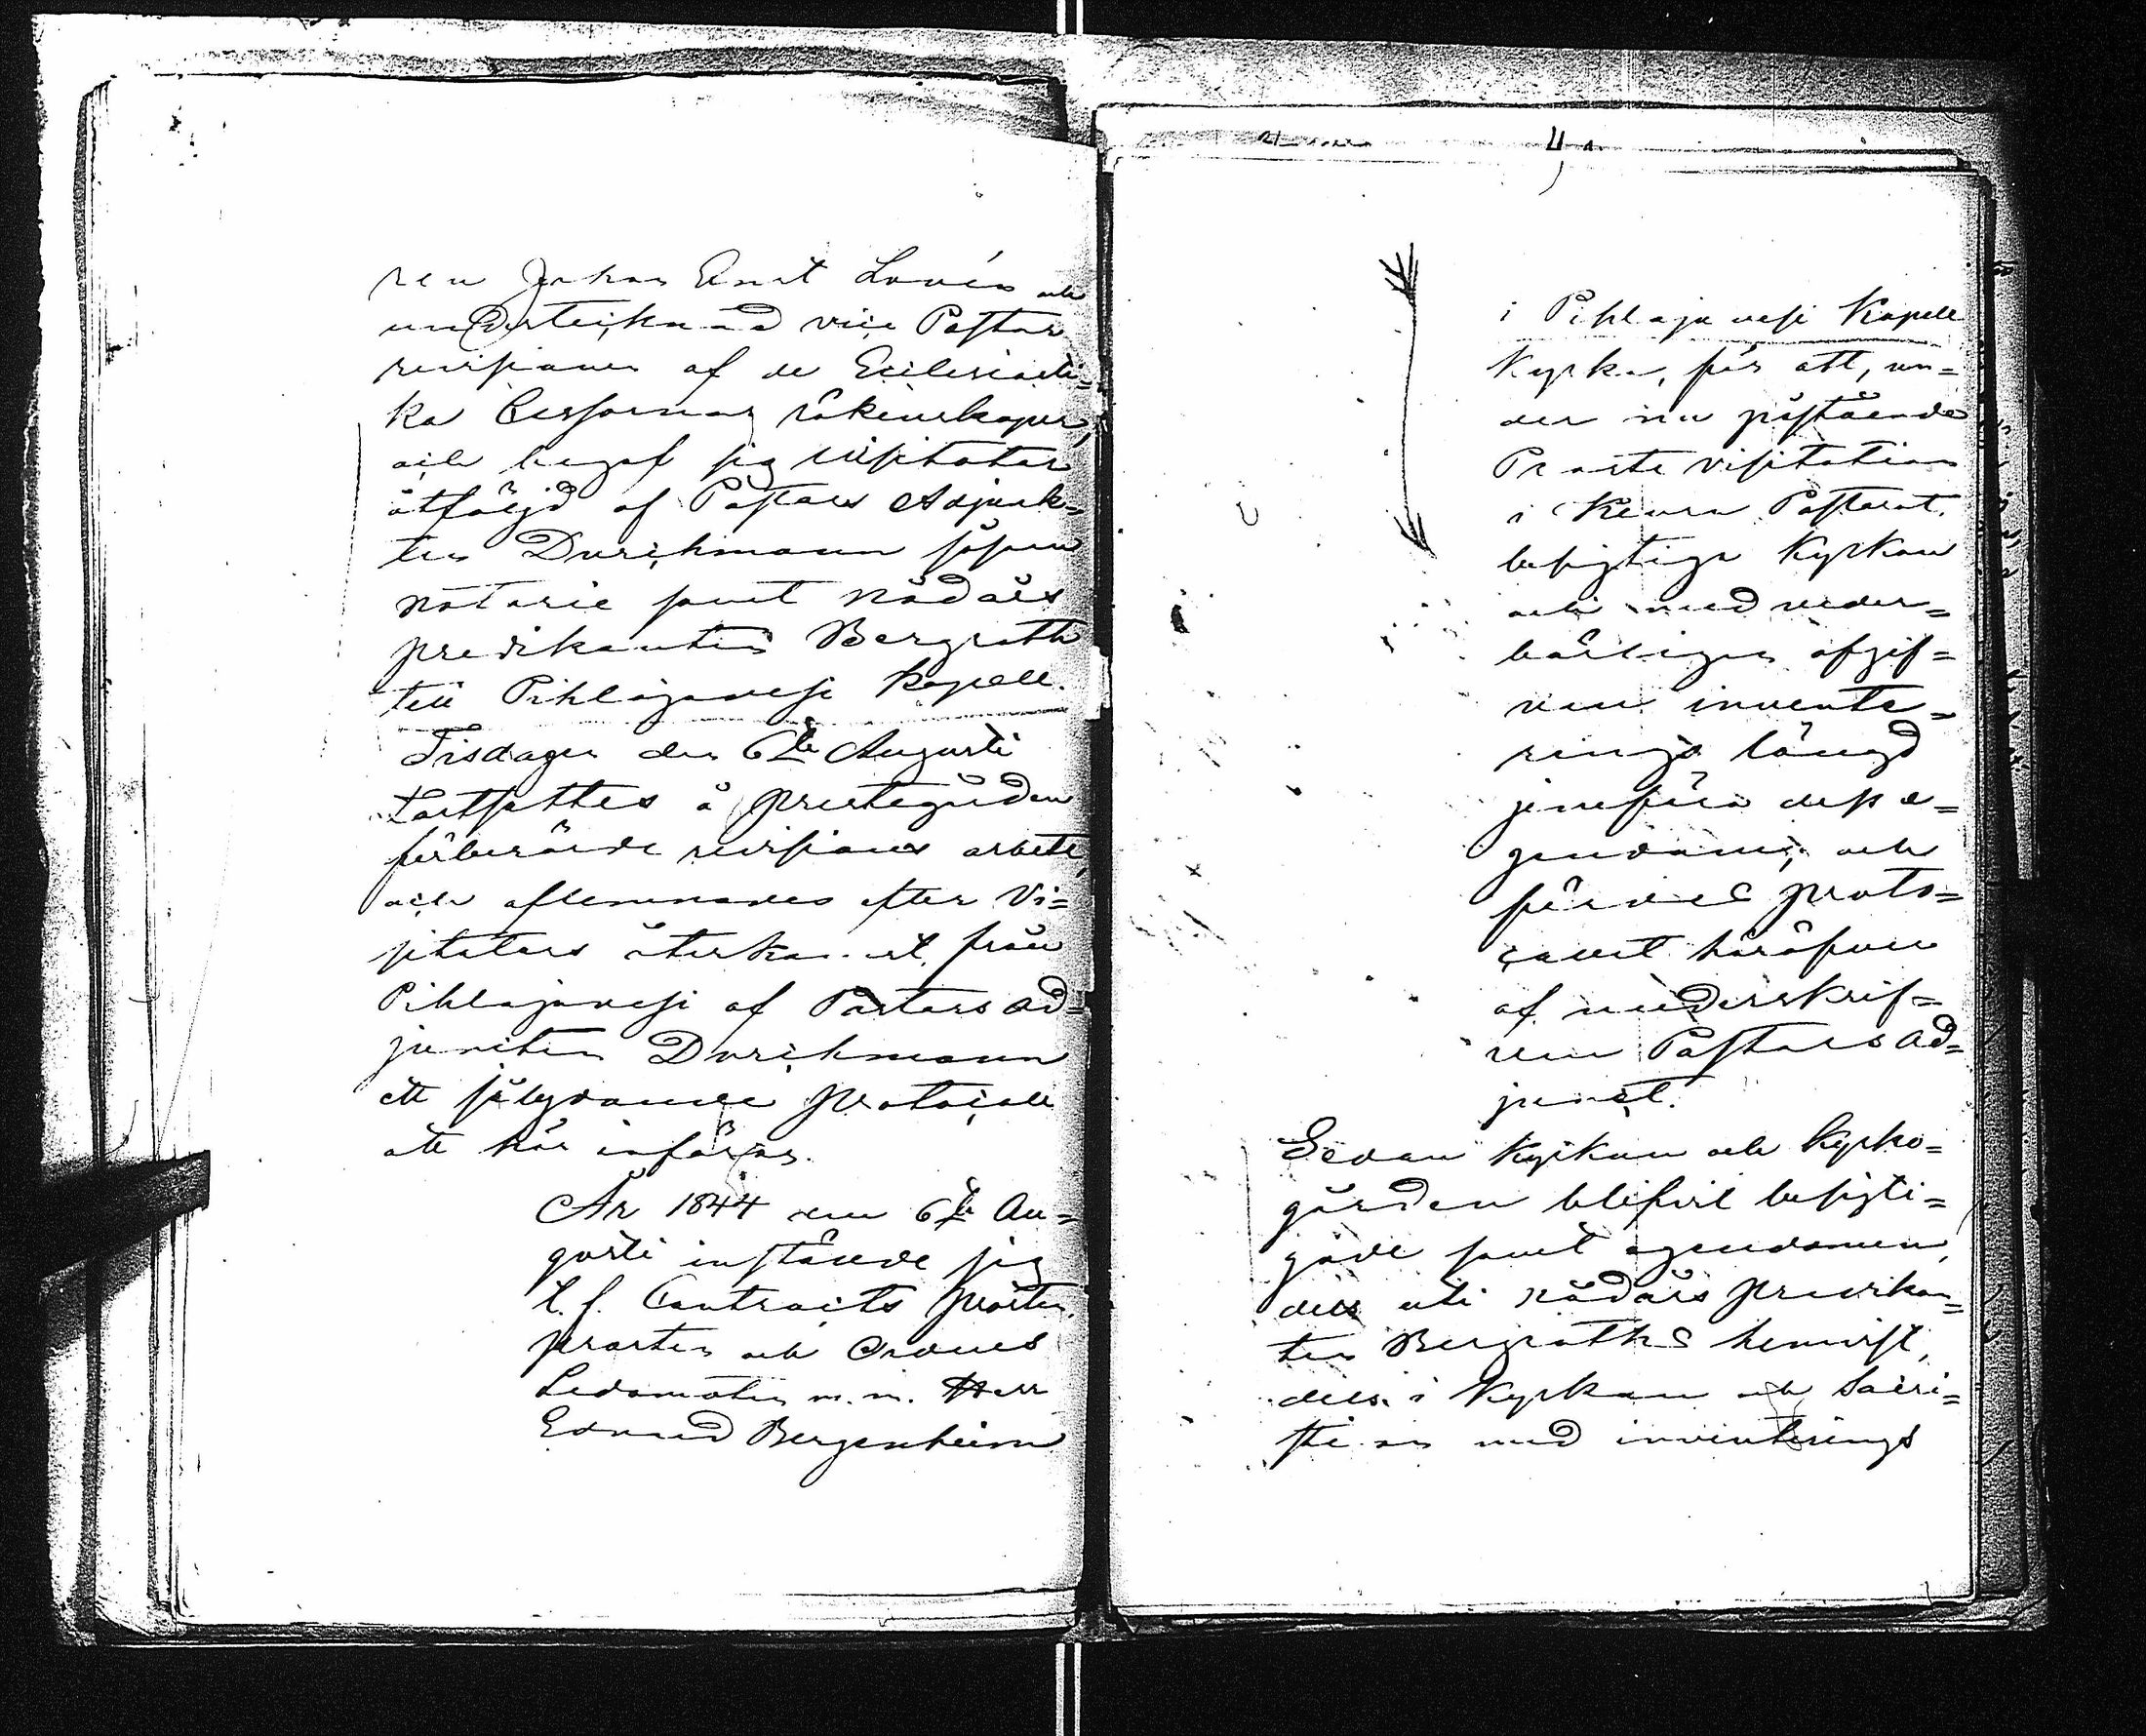 ren Johan Ernst Lovén och
undertecknad vice Pastor
revisionen af de Ecclesiasti=
ka Cassornas räkenskaper,
och begaf sig visitator
åtföljd af Pastors Adjunk=
ten Durchmann såsom
notarie samt nådårs
predikanten Bergroth
till Pihlajavesi Kapell.
Tisdagen den 6te Augusti
fortsattes å prestegården
förberörde revisions arbete,
och aflemnades efter Vi=
sitators återkomst från
Pihlajavesi af Pastors Ad=
juncten Durchmann
ett sålydande protocoll
att här införas.
År 1844 den 6te Au=
gusti instälde sig
t. f. Contracts prosten
prosten och Ordens
Ledamoten m. m. Herr
Edvard Bergenheim
4
i Pihlajavesi Kapell
Kyrka, för att, un=
der nu påstående
Proste visitation
i Keuru Pastorat,
besigtiga Kyrkan
och med veder=
börligen afgif=
ven invente=
rings längd
jemföra dess e=
gendom, och
fördes proto=
collet häröfver
af underskrif=
ven Pastors Ad=
junct.
Sedan Kyrkan och Kyrko=
gården blifvit besigti=
gade samt egendomen,
dels uti nådårs predikan=
ten Bergroths hemvist,
dels i Kyrkan och Sacri=
stian med inventerings